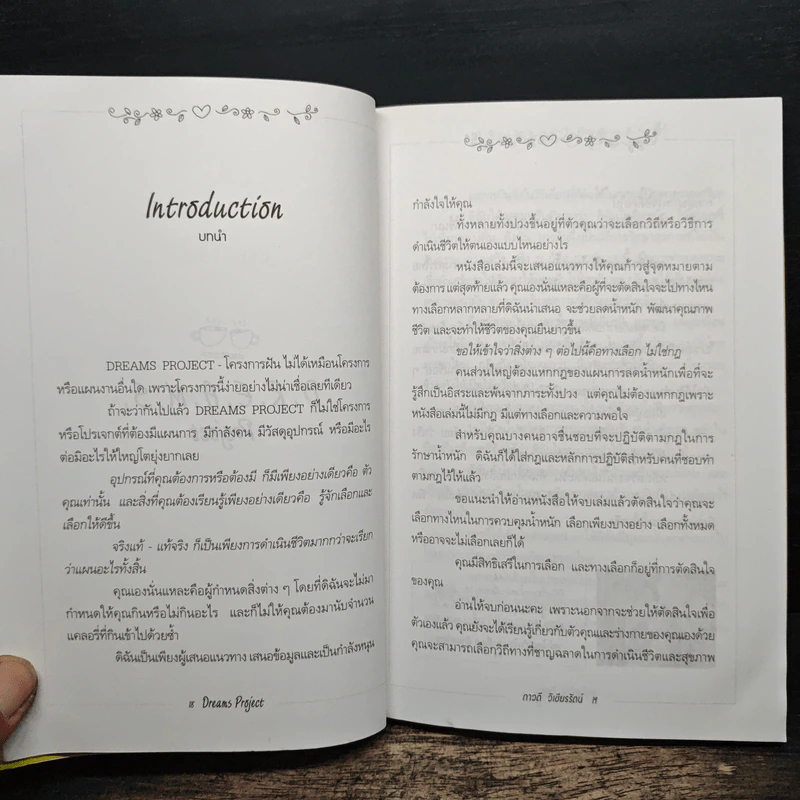 Introduction
บทนำ
DREAMS PROJECT - โครงการฝัน ไม่ได้เหมือนโครงการ
หรือแผนงานอื่นใด เพราะโครงการนี้ง่ายอย่างไม่น่าเชื่อเลยทีเดียว
ถ้าจะว่ากันไปแล้ว DREAMS PROJECT ก็ไม่ใช่โครงการ
หรือโปรเจกต์ที่ต้องมีแผนการ มีกำลังคน มีวัสดุอุปกรณ์ หรือมีอะไร
ต่อมิอะไรให้ใหญ่โตยุ่งยากเลย
อุปกรณ์ที่คุณต้องการหรือต้องมี ก็มีเพียงอย่างเดียวคือ ตัว
คุณเท่านั้น และสิ่งที่คุณต้องเรียนรู้เพียงอย่างเดียวคือ รู้จักเลือกและ
เลือกให้ดีขึ้น
จริงแท้ - แท้จริง ก็เป็นเพียงการดำเนินชีวิตมากกว่าจะเรียก
ว่าแผนอะไรทั้งสิ้น
คุณเองนั่นแหละคือผู้กำหนดสิ่งต่าง ๆ โดยที่ดิฉันจะไม่มา
กำหนดให้คุณกินหรือไม่กินอะไร และก็ไม่ให้คุณต้องมานับจำนวน
แคลอรี่ที่กินเข้าไปด้วยซ้ำ
ดิฉันเป็นเพียงผู้เสนอแนวทาง เสนอข้อมูลและเป็นกำลังหนุน
๑๕ Dreams Project
กำลังใจให้คุณ
ทั้งหลายทั้งปวงขึ้นอยู่ที่ตัวคุณว่าจะเลือกวิถีหรือวิธีการ
ดำเนินชีวิตให้ตนเองแบบไหนอย่างไร
หนังสือเล่มนี้จะเสนอแนวทางให้คุณก้าวสู่จุดหมายตาม
ต้องการ แต่สุดท้ายแล้ว คุณเองนั่นแหละคือผู้ที่จะตัดสินใจจะไปทางไหน
ทางเลือกหลากหลายที่ดิฉันนำเสนอ จะช่วยลดน้ำหนัก พัฒนาคุณภาพ
ชีวิต และจะทำให้ชีวิตของคุณยืนยาวขึ้น
ขอให้เข้าใจว่าสิ่งต่าง ๆ ต่อไปนี้คือทางเลือก ไม่ใช่กฎ
คนส่วนใหญ่ต้องแหกกฎของแผนการลดน้ำหนักเพื่อที่จะ
รู้สึกเป็นอิสระและพ้นจากภาระทั้งปวง แต่คุณไม่ต้องแหกกฎเพราะ
หนังสือเล่มนี้ไม่มีกฎ มีแต่ทางเลือกและความพอใจ
สำหรับคุณบางคนอาจชื่นชอบที่จะปฏิบัติตามกฎในการ
รักษาน้ำหนัก ดิฉันก็ได้ใส่กฎและหลักการปฏิบัติสำหรับคนที่ชอบทำ
ตามกฎไว้ให้แล้ว
ขอแนะนำให้อ่านหนังสือให้จบเล่มแล้วตัดสินใจว่าคุณจะ
เลือกทางไหนในการควบคุมน้ำหนัก เลือกเพียงบางอย่าง เลือกทั้งหมด
หรืออาจจะไม่เลือกเลยก็ได้
คุณมีสิทธิเสรีในการเลือก และทางเลือกก็อยู่ที่การตัดสินใจ
ของคุณ
อ่านให้จบก่อนนะคะ เพราะนอกจากจะช่วยให้ตัดสินใจเพื่อ
ตัวเองแล้ว คุณยังจะได้เรียนรู้เกี่ยวกับตัวคุณและร่างกายของคุณเองด้วย
คุณจะสามารถเลือกวิถีทางที่ชาญฉลาดในการดำเนินชีวิตและสุขภาพ
ภาวดี วิเชียรรัตน์